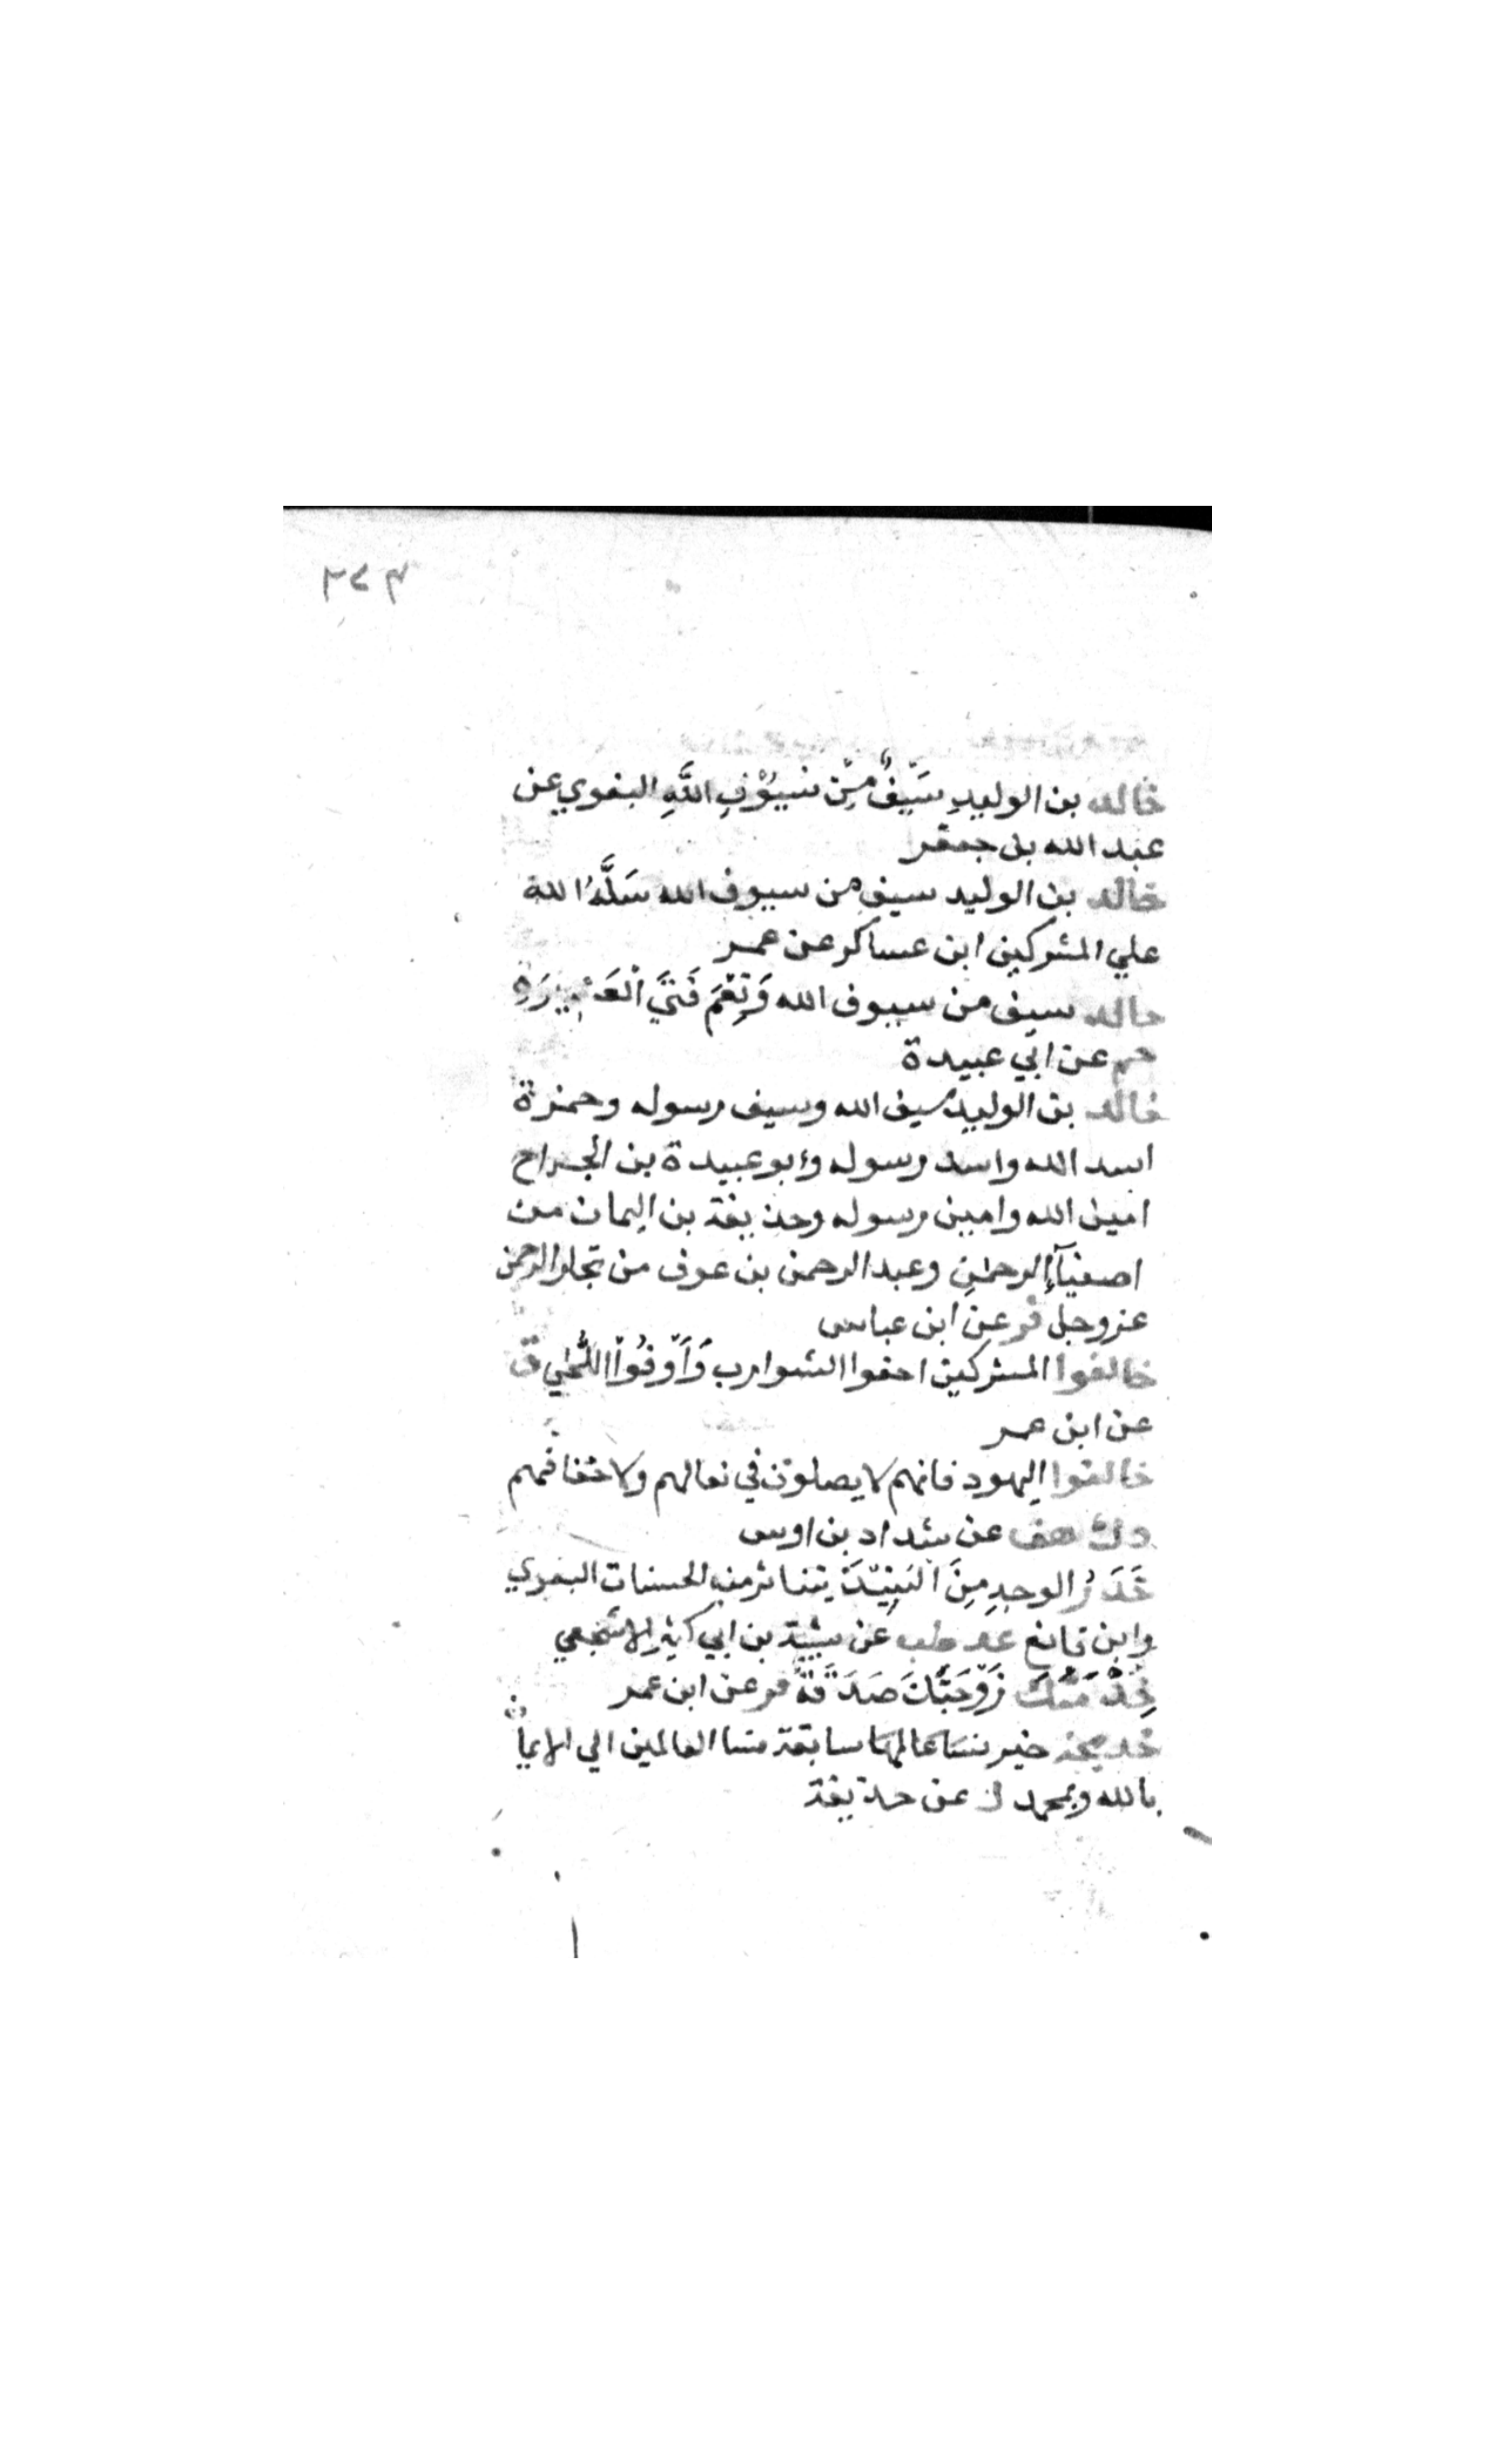 ٢٧٣
خالد بن الوليدِ سَيْفٌ مِّنْ سُيُوْفِ اللَّهِ البغوي عن
عبد الله بن جعفر
خالد بن الوليد سيف من سيوف الله سَلَّهُ الله
علي المشركين ابن عساكر عن عمر
خالد سيف من سيوف الله وَنِعْمَ فَتَيَ الْعَشِيرَةِ
حم عن ابي عبيدة
خالد بن الوليد سيف الله وسيف رسوله وحمزة
اسد الله واسد رسوله وابو عبيدة بن الجراح
امين الله وامين رسوله وحذيفة بن اليمان من
اصفيآءِ الرحمٰنِ وعبد الرحمن بن عوف من تجار الرحمن
عز وجل فر عن ابن عباس
خالفوا المشركين احفوا الشوارب وَأَوْفُوْا اللُّحٰي ق
عن ابن عمر
خالفوا اليهود فانهم لا يصلون في نعالهم ولا خفافهم
د ك هق عن شداد بن اوس
خَدَرُ الوجهِ مِنَ النَّبِيْذِ يتناثر منه الحسنات البغوي
وابن قانع عد طب عن شيبة بن ابي كثير الاشجعي
خُذْ مِنْكَ زَوْجَتُكَ صَدَقَةٌ فر عن ابن عمر
خديجة خير نساء عالمها سابقة نسا العالمين الي الايمان
بالله وبمحمد ك عن حذيفة